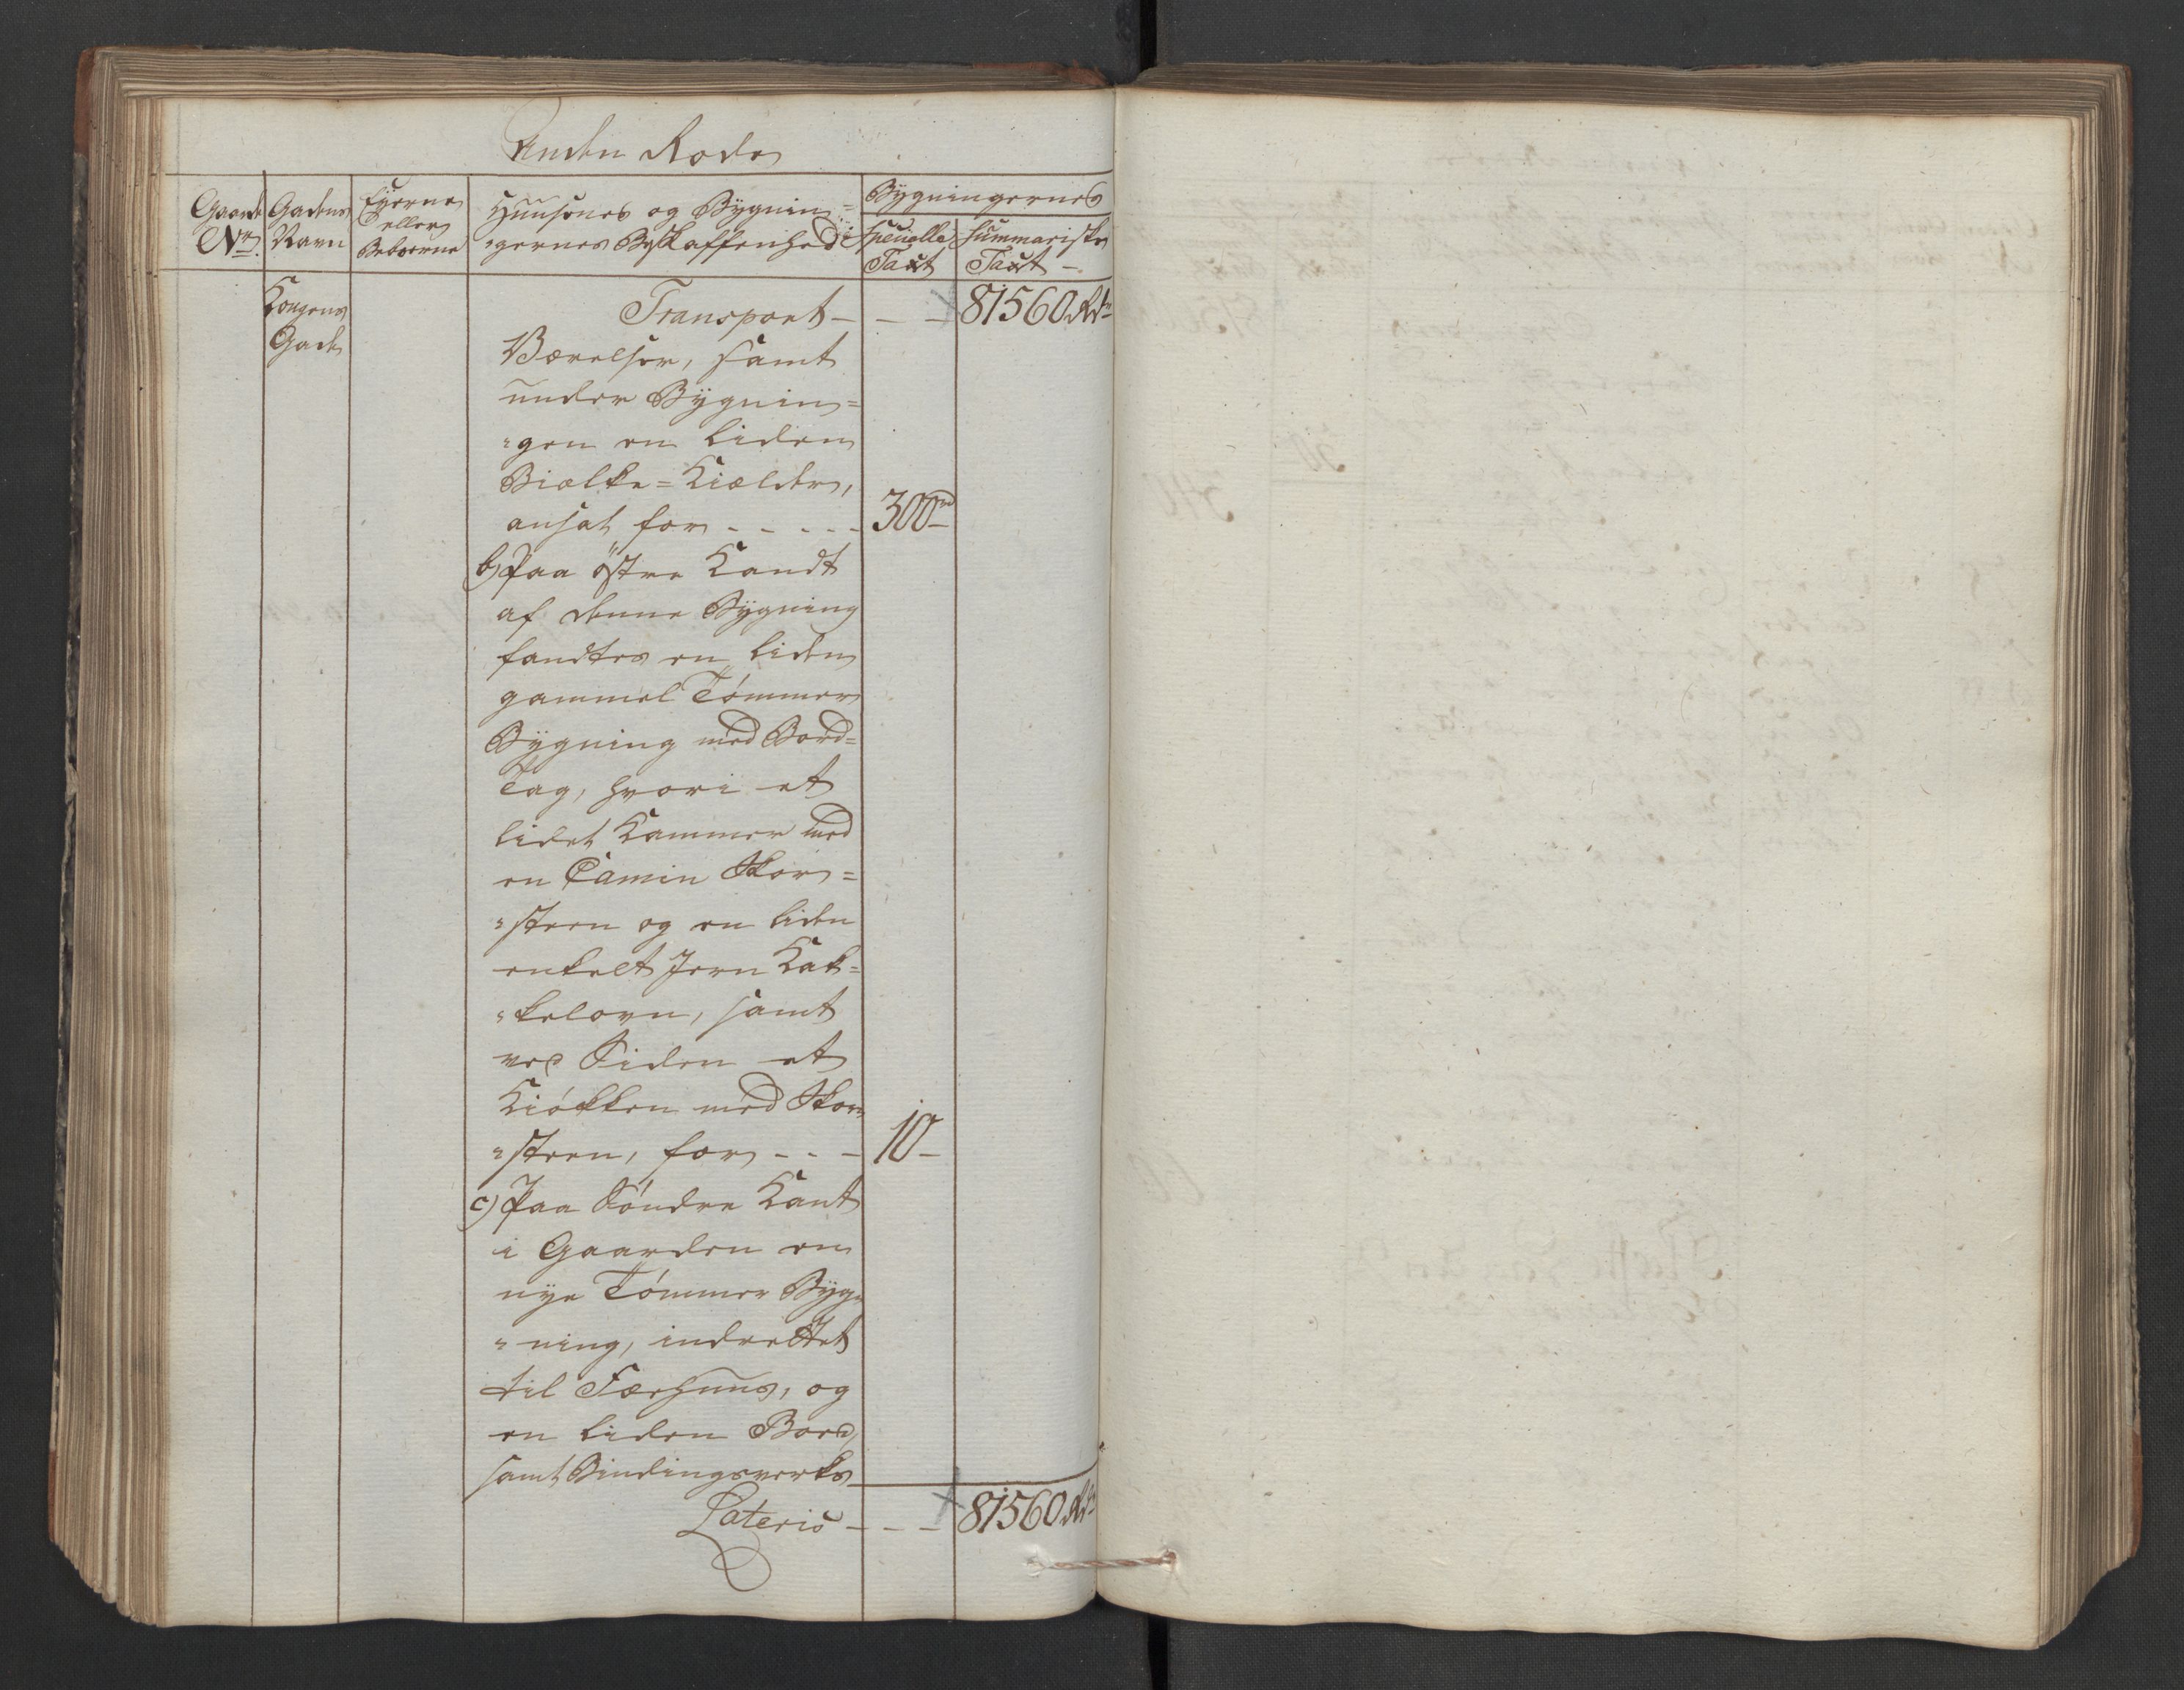 Anden Rode
Gaards No.
Gadens Navn
Eyerne eller Beboerne
Huusenes og Bygnin=
"gernes Beskaffenhed
Bygningernes
Specielle Taxt
Summariske Taxt -
Kongens
Gade
Transport - - - 81560 Rdr
Værelser, samt
under Bygnin=
"gen en liden
Bielke=Kielder,
ansat for - - - - - 300rd
b) Paa östre Kandt
af denne Bygning
fandtes en liden
gammel Tömmer
Bygning med Bord=
Tag, hvori et
lidet Kammer med
en Camin Skor=
"steen og en liden
enkelt Jern Kak=
"kelovn, samt
ved Siden et
Kiökken med Skor=
"steen, for - - - 10 -
c) Paa Söndre Kant
i Gaarden en
nye Tömmer Byg=
"ning, indrettet
til Færhuus, og
en liden Bord,
samt Bindingsverks
Lateris - - - 81560 Rdr